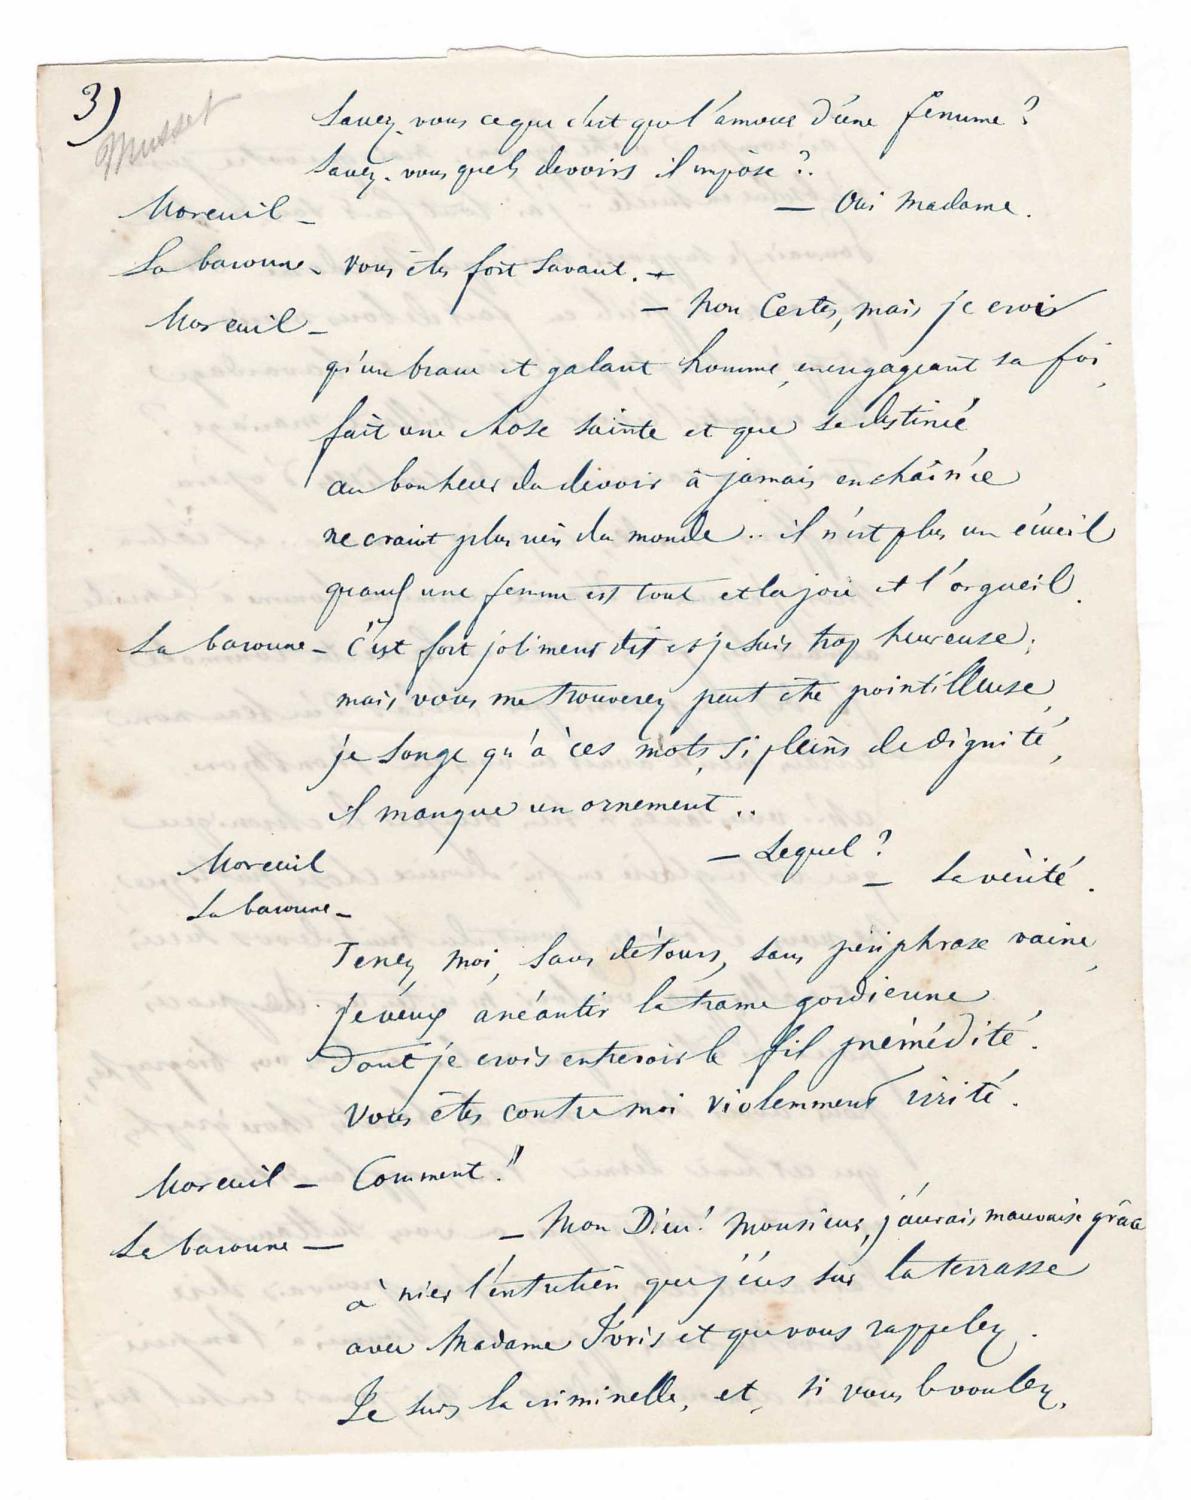 3)
Musset
Savez-vous ce que c'est que l'amour d'une femme?
Savez-vous quels devoirs il impose?
Moreuil – — Oui Madame.
La baronne – Vous êtes fort savant. –
Moreuil – — Non Certes, mais je crois
qu'un brave et galant homme, en engageant sa foi,
fait une chose sainte et que sa destinée
au bonheur du devoir à jamais enchaînée
ne craint plus rien du monde.. il n'est plus un écueil
quand une femme est tout et la joie et l'orgueil.
La baronne – C'est fort joliment dit et je suis trop heureuse;
mais vous me trouverez peut être pointilleuse,
je songe qu'à ces mots, si pleins de dignité,
il manque un ornement..
Moreuil — Lequel?
La baronne – — La vérité.
Tenez, moi, sans détours, sans périphrase vaine,
je veux anéantir la trame gordienne
Dont je crois entrevoir le fil prémédité.
Vous êtes contre moi violemment irrité.
Moreuil – Comment!
La baronne — – Mon Dieu! Monsieur, j'aurais mauvaise grâce
à nier l'entretien que j'eus sur la terrasse
avec Madame Ivris et que vous rappelez.
Je suis la criminelle, et, si vous le voulez,